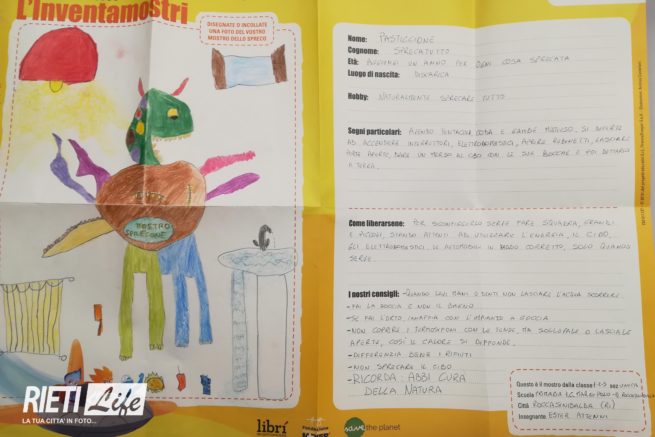 L'Inventamostri
DISEGNATE O INCOLLATE
UNA FOTO DEL VOSTRO
MOSTRO DELLO SPRECO
MOSTRO
SPRECONE
RIETI Life
LA TUA CITTA' IN FOTO...
librí
Nome: PASTICCIONE
Cognome: SPRECATUTTO
Età: AGGIUNGI UN ANNO PER OGNI COSA SPRECATA
Luogo di nascita: DISCARICA
Hobby: NATURALMENTE SPRECARE TUTTO
Segni particolari: AVENDO TENTACOLI CODA E GAMBE SI DIVERTE
AD ACCENDERE INTERRUTTORI, ELETTRODOMESTICI, APRIRE RUBINETTI, LASCIARE
PORTE APERTE, DARE UN MORSO AL CIBO CON LE SUE BOCCHE E POI BUTTARLO
A TERRA.
Come liberarsene: PER SCONFIGGERLO SERVE FARE SQUADRA, GRANDI
E PICCOLI, STANDO ATTENTI AD UTILIZZARE L'ENERGIA, IL CIBO,
GLI ELETTRODOMESTICI, LE AUTOMOBILI IN MODO CORRETTO, SOLO QUANDO
SERVE.
I nostri consigli: - QUANDO LAVI MANI O DENTI NON LASCIARE L'ACQUA SCORRERE.
- FAI LA DOCCIA E NON IL BAGNO
- SE FAI L'ORTO, INNAFFIA CON L'IMPIANTO A GOCCIA
- NON COPRIRE I TERMOSIFONI CON LE TENDE, MA LASCIALE
APERTE, COSÌ IL CALORE SI DIFFONDE.
- DIFFERENZIA BENE I RIFIUTI
- NON SPRECARE IL CIBO
- RICORDA: ABBI CURA
DELLA NATURA
Questo è il mostro della classe sez.
Scuola PRIMARIA
Città ROCCASINIBALDA (RI)
Insegnante ESTER
save the planet